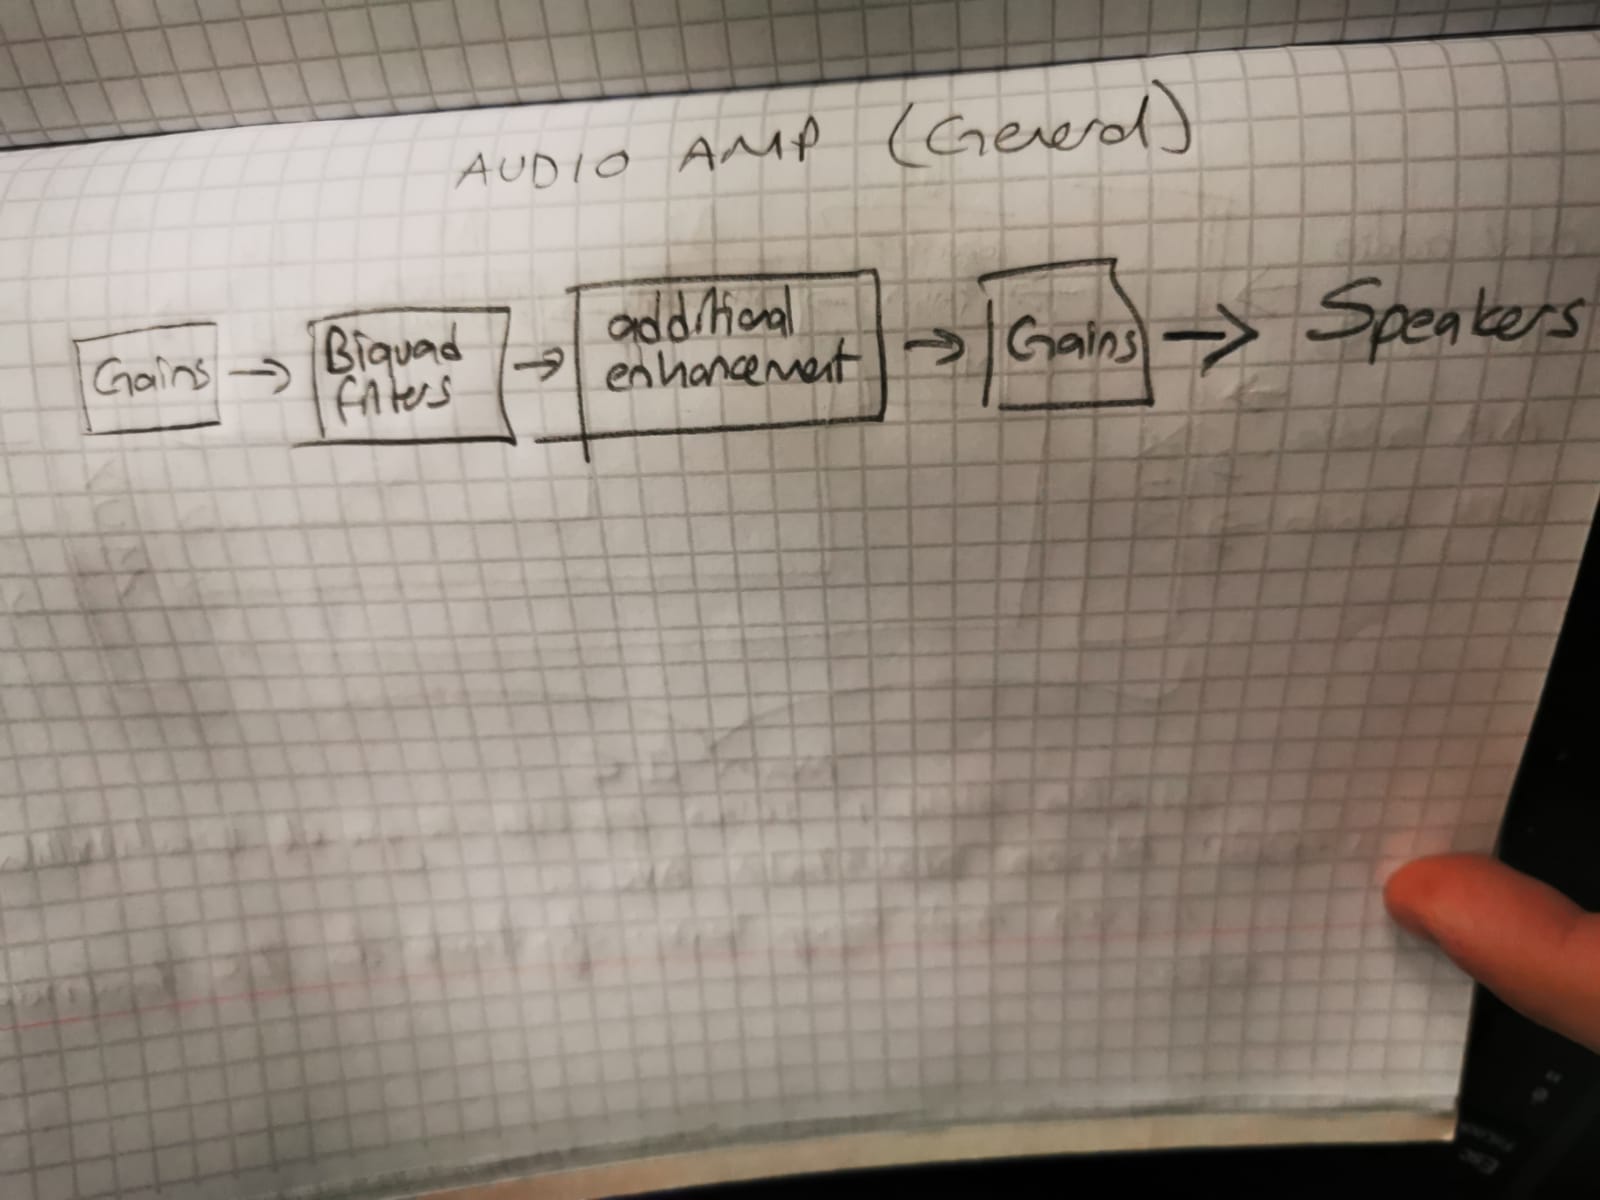 AUDIO AMP (General)
Gains → Biquad filters → additional enhancement → Gains → Speakers